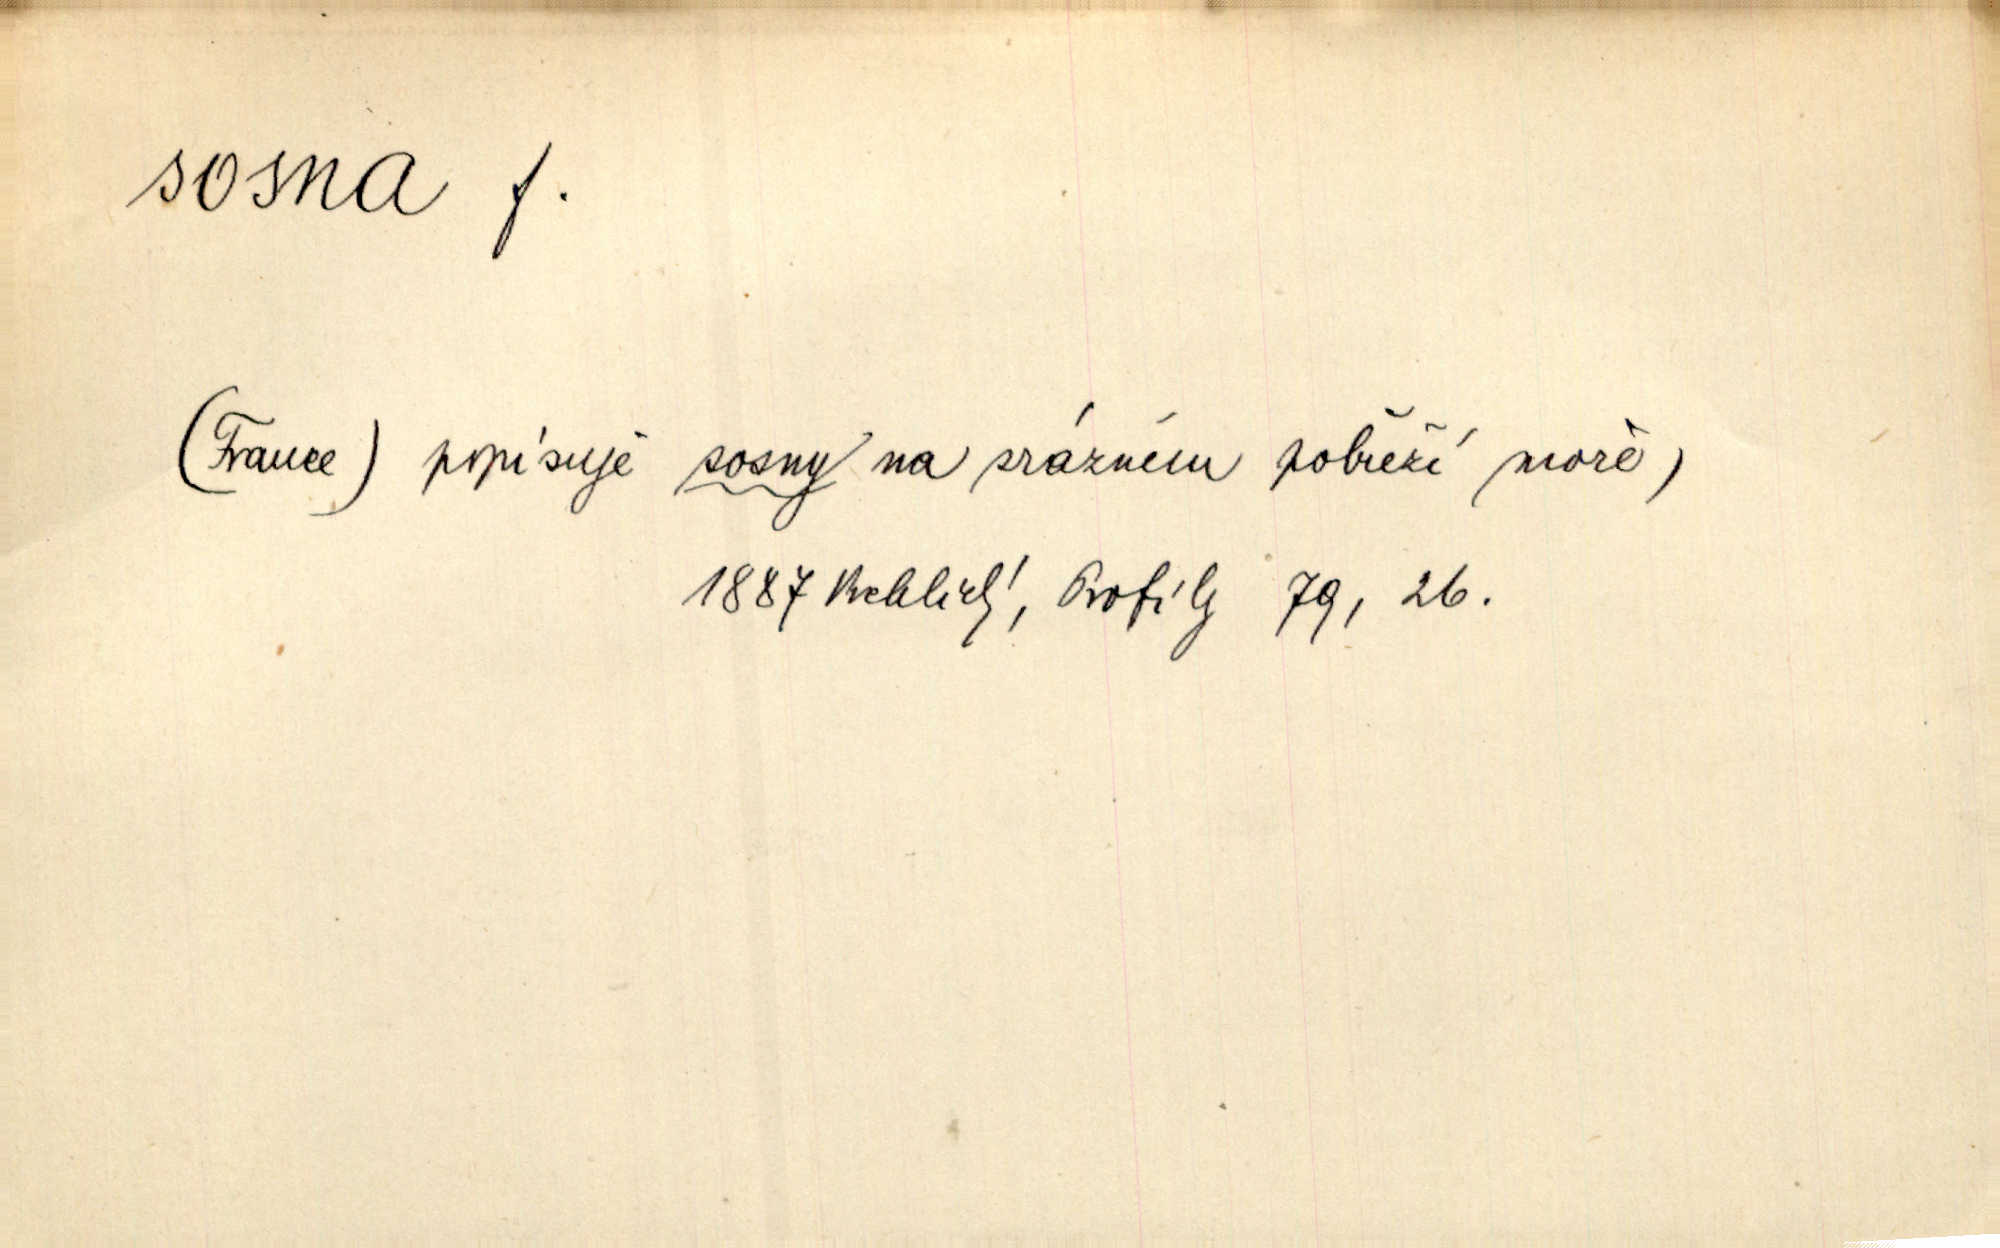 sosna f.
(France) popisuje sosny na srázném pobřeží moře,
1887 Vrchlický, Profily 79, 26.